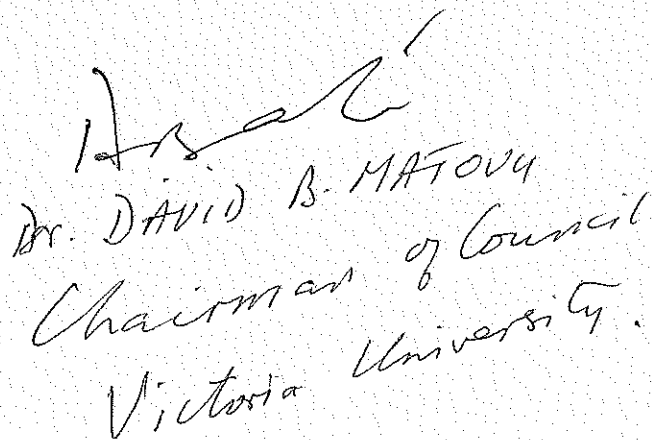 Dr. DAVID B. MATOVU
Chairman of Council
Victoria University.